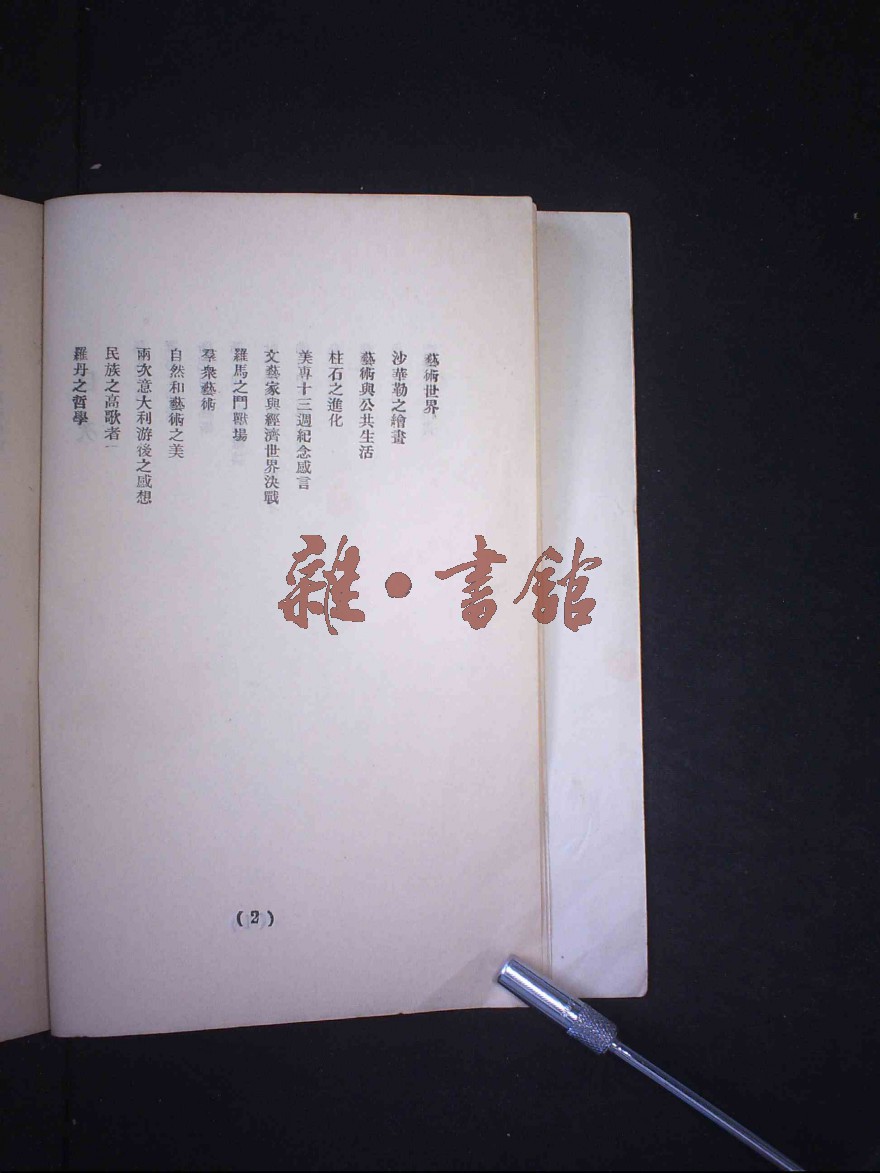 藝術世界
沙華勒之繪畫
藝術與公共生活
柱石之進化
美專十三週紀念感言
文藝家與經濟世界決戰
羅馬之鬥獸場
羣衆藝術
自然和藝術之美
兩次意大利游後之感想
民族之高歌者
羅丹之哲學
(2)
雜·書館